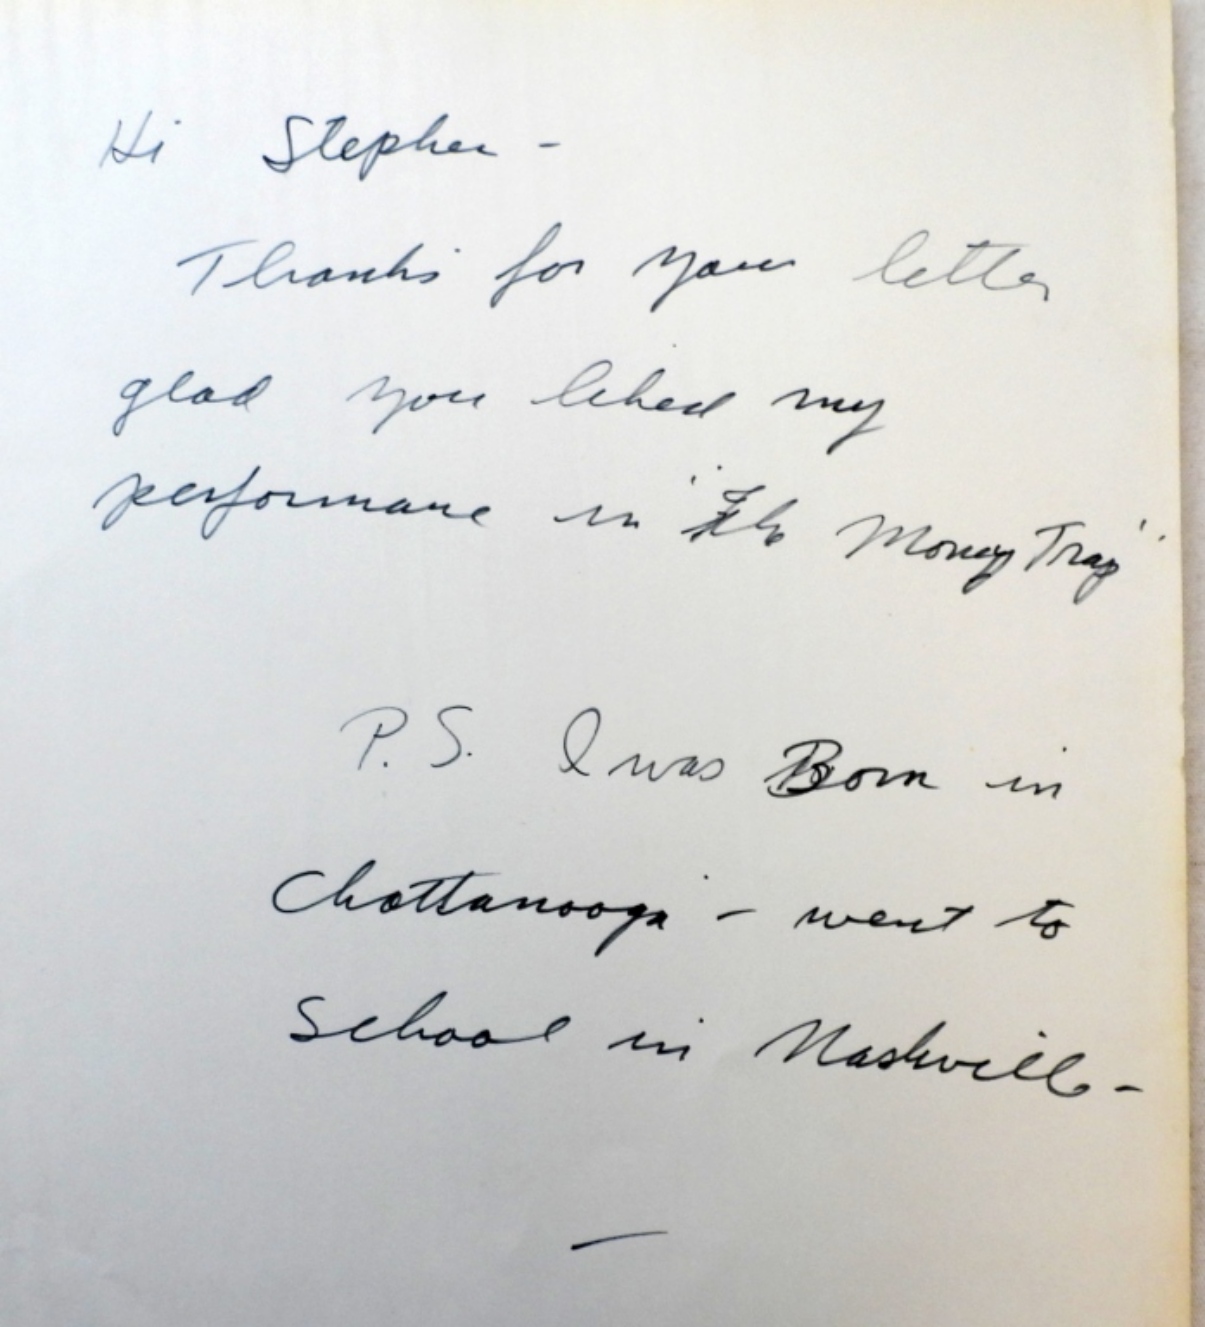 Hi Stephen -
Thanks for your letter
glad you liked my
performance in "The Money Trap"
P.S. I was Born in
Chattanooga - went to
School in Nashville -